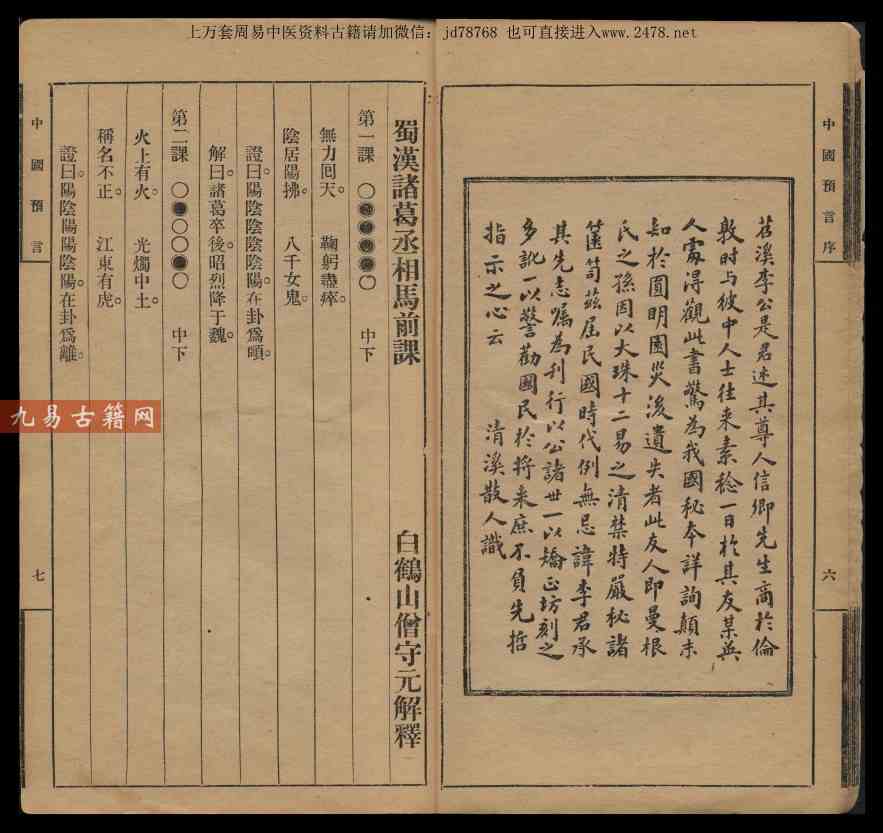 上万套周易中医资料古籍请加微信：jd78768 也可直接进入www.2478.net
中國預言序
六
苕溪李公是君述其尊人信卿先生商於倫
敦时与彼中人士往来素稔一日於其友某英
人處得觀此書驚為我國秘本詳詢顛末
知於圓明園災後遺失者此友人即曼根
氏之孫因以大珠十二易之清禁特嚴秘諸
篋笥茲屆民國時代例無忌諱李君承
其先志囑為刊行以公諸世一以矯正坊刻之
多訛一以警勸國民於将来庶不負先哲
指示之心云
清溪散人識
蜀漢諸葛丞相馬前課
白鶴山僧守元解釋
第一課 〇●●●●〇 中下
無力回天。 鞠躬盡瘁。
陰居陽拂。 八千女鬼。
證曰。陽陰陰陰陰陽。在卦爲頤。
解曰。諸葛卒後。昭烈降于魏。
第二課 〇●〇〇●〇 中下
火上有火。 光燭中土。
稱名不正。 江東有虎。
證曰。陽陰陽陽陰陽。在卦爲離。
中國預言
七
九易古籍网